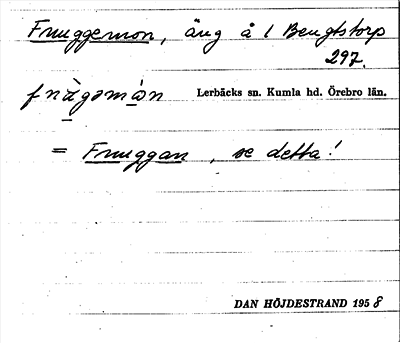 Fnuggemon, äng å 1 Bengtstorp
297.
fnàgəmòn Lerbäcks sn. Kumla hd. Örebro län.
= Fnuggan, se detta!
DAN HÖJDESTRAND 1958